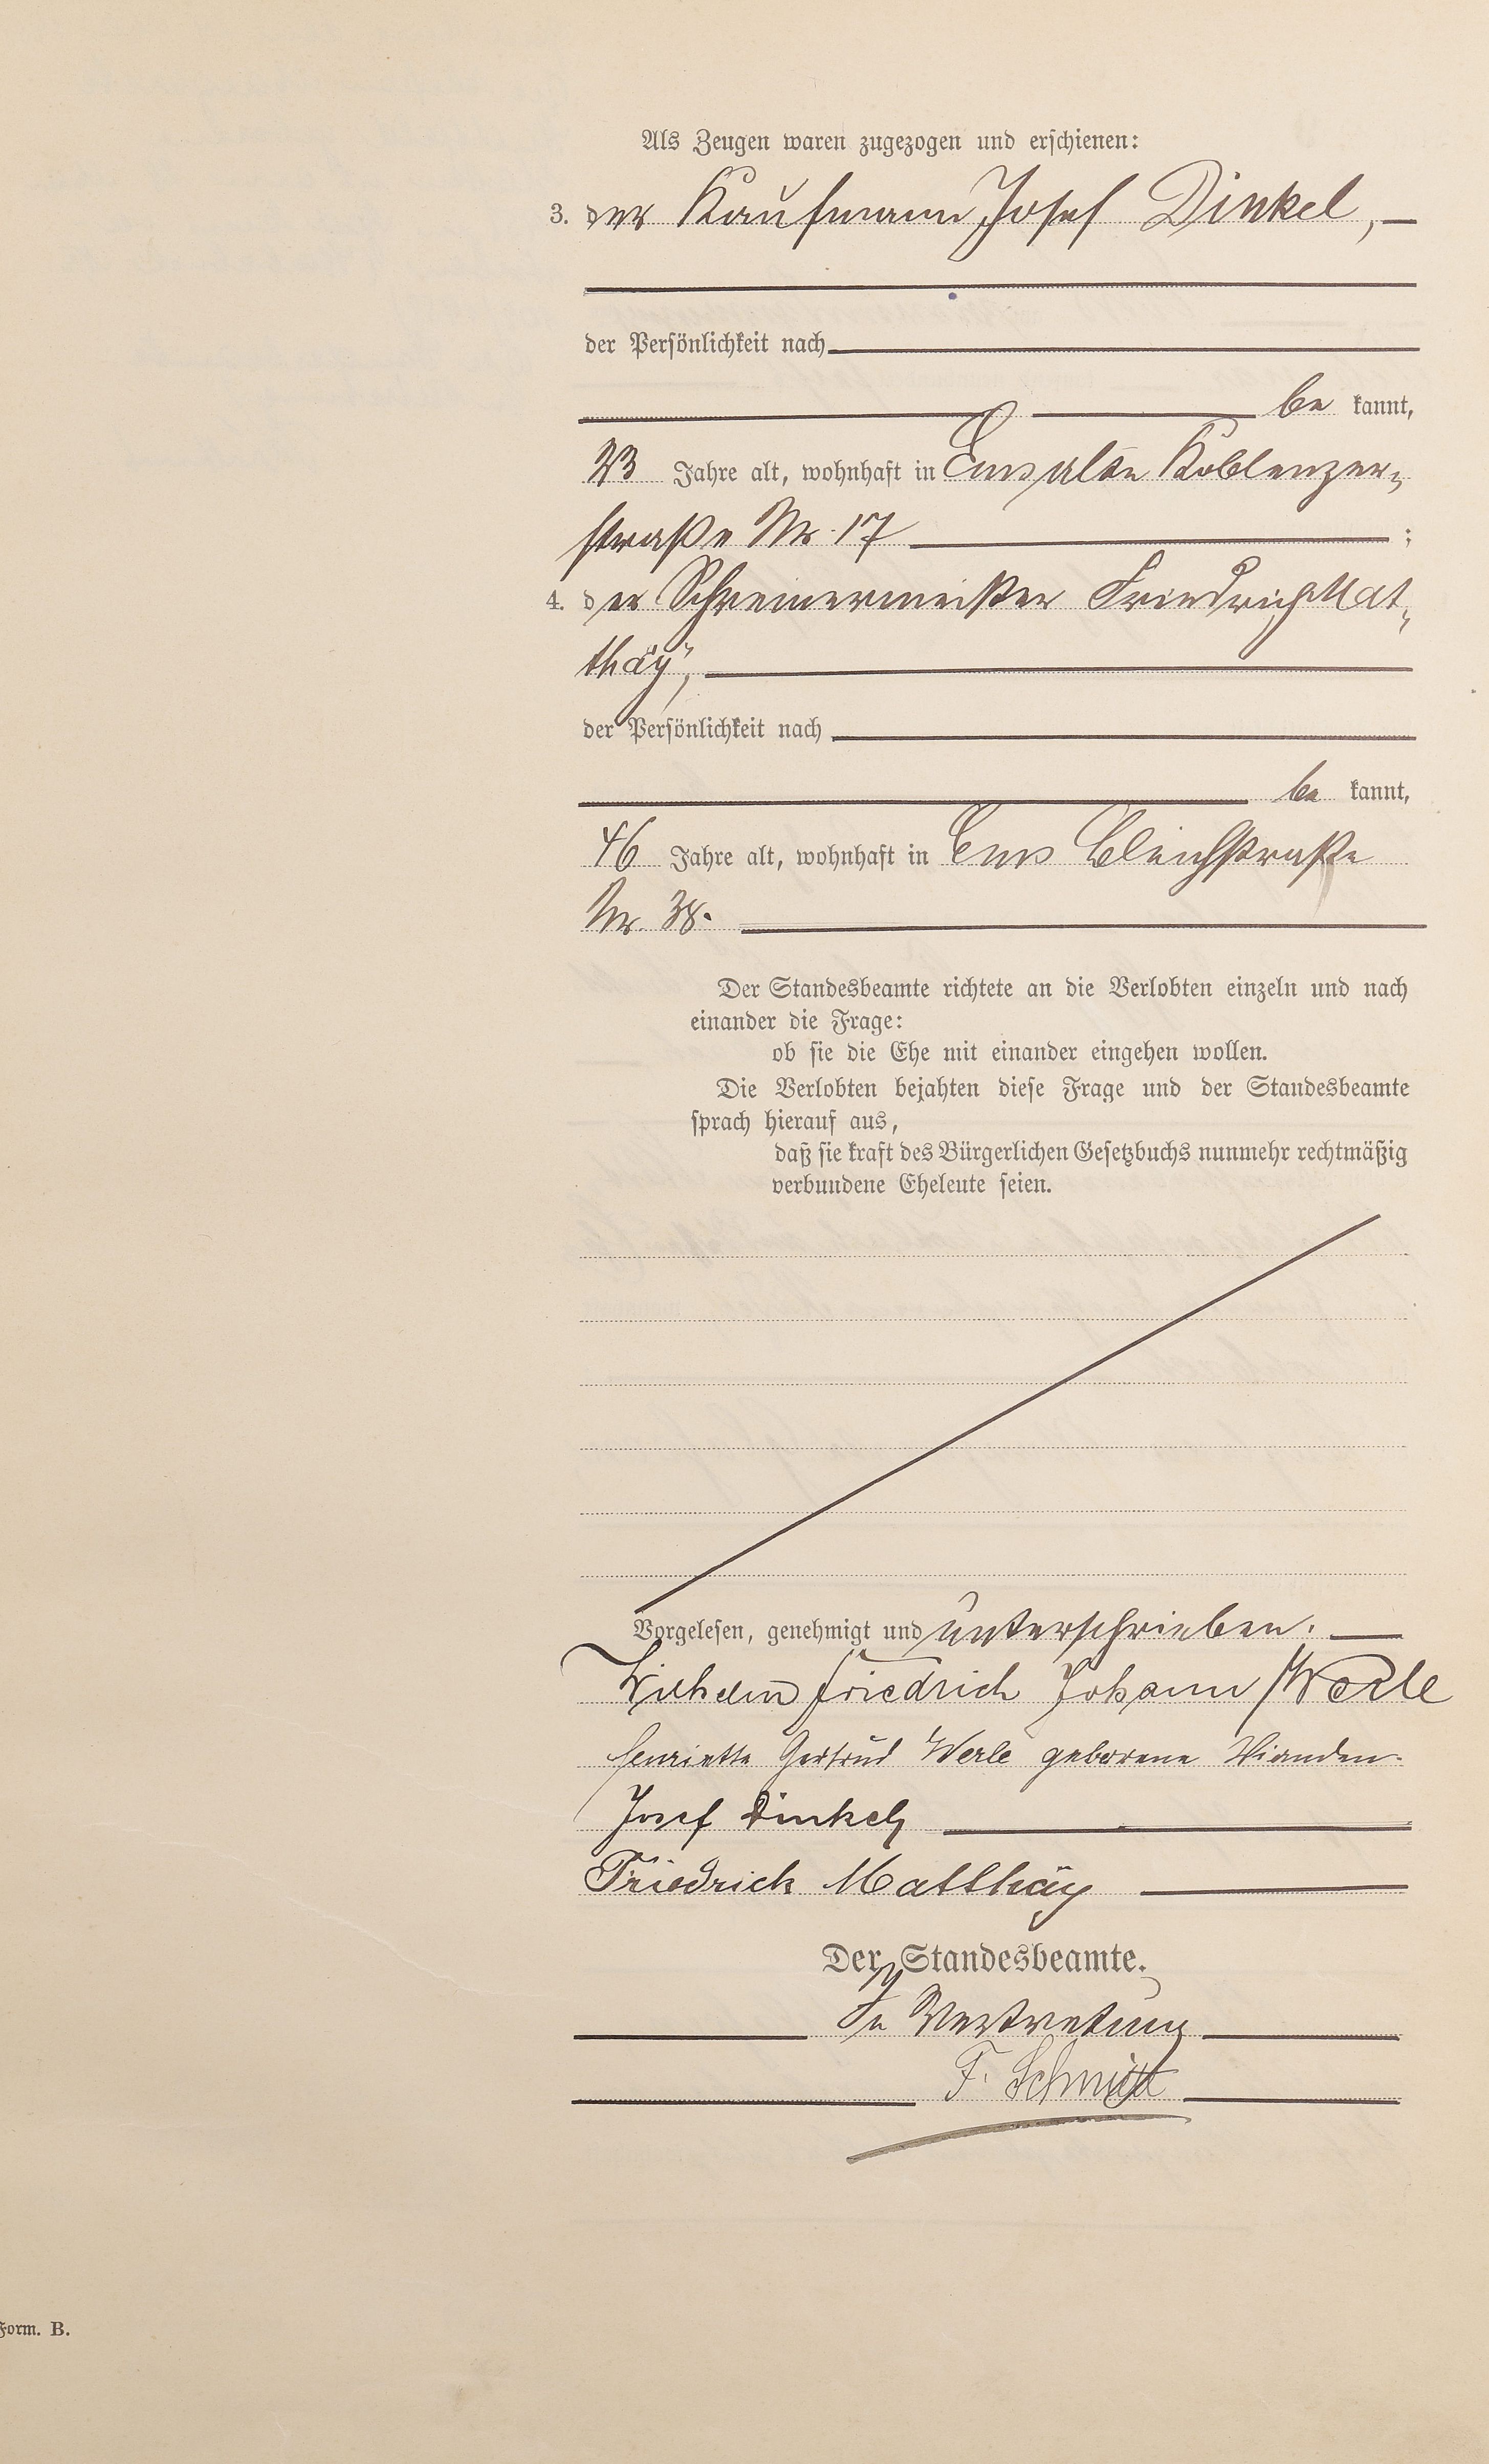 Als Zeugen waren zugezogen und erschienen:
3. der Kaufmann Josef Dinkel,
der Persönlichkeit nach
be kannt,
23 Jahre alt, wohnhaft in Ems alte Koblenzer-
straße Nr. 17 ;
4. der Schreinermeister Friedrich Mat-
thäy,
der Persönlichkeit nach
be kannt,
46 Jahre alt, wohnhaft in Ems Bleichstraße
Nr. 38.
Der Standesbeamte richtete an die Verlobten einzeln und nach
einander die Frage:
ob sie die Ehe mit einander eingehen wollen.
Die Verlobten bejahten diese Frage und der Standesbeamte
sprach hierauf aus,
daß sie kraft des Bürgerlichen Gesetzbuchs nunmehr rechtmäßig
verbundene Eheleute seien.
Vorgelesen, genehmigt und unterschrieben.
Wilhelm Friedrich Johann Werle
Henriette Gertrud Werle geborene Vianden.
Josef Dinkel
Friedrich Matthäy
Der Standesbeamte.
In Vertretung
F. Schmitt
Form. B.